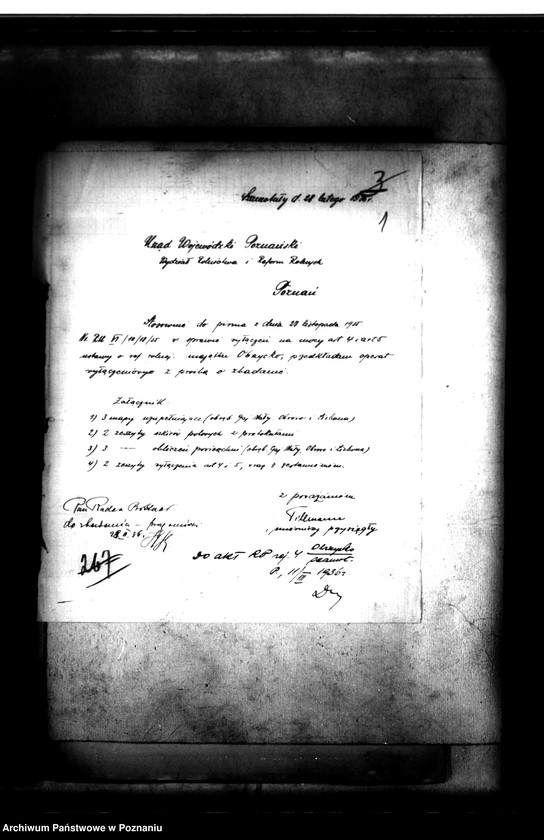 Szamotuły d. 28 lutego 1936 r.
3
1
Urząd Wojewódzki Poznański
Wydział Rolnictwa i Reform Rolnych
Poznań
Stosownie do pisma z dnia 20 listopada 1935
Nr. RU VI/ w sprawie wyłączeń na mocy art 4 i art 5
ustawy o ref. rolnej. majątku Obrzycko, przedkładam operat
wyłączeniowy z prośbą o zbadanie.
Załącznik
1) 3 mapy uzupełniające (obręb Gaj Mały, Obrowo i)
2) 2 zeszyty szkiców polowych z protokułami
3) 3 — obliczeń powierzchni (obręb Gaj Mały, Obrowo i)
4) 2 zeszyty wyłączenia art 4 i 5, wraz z zestawieniem.
z poważaniem
Tillmann
mierniczy przysięgły
Pan Radca
do zbadania –
267
do akt RP rej. 4 Obrzycko
szamot.
P., 11/III 1936 r.
Archiwum Państwowe w Poznaniu